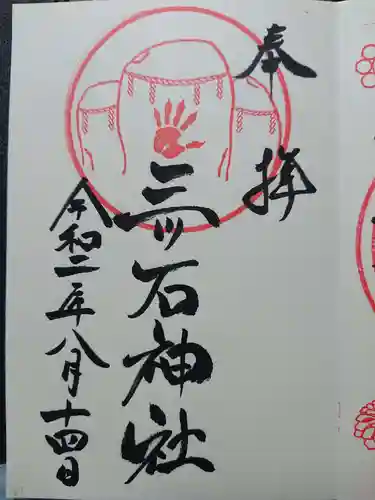 奉拝
三ツ石神社
令和二年八月十四日